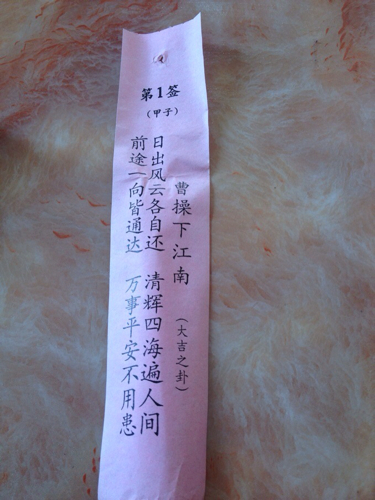 第1签
(甲子)
曹操下江南 (大吉之卦)
日出风云各自还 清辉四海遍人间
前途一向皆通达 万事平安不用患